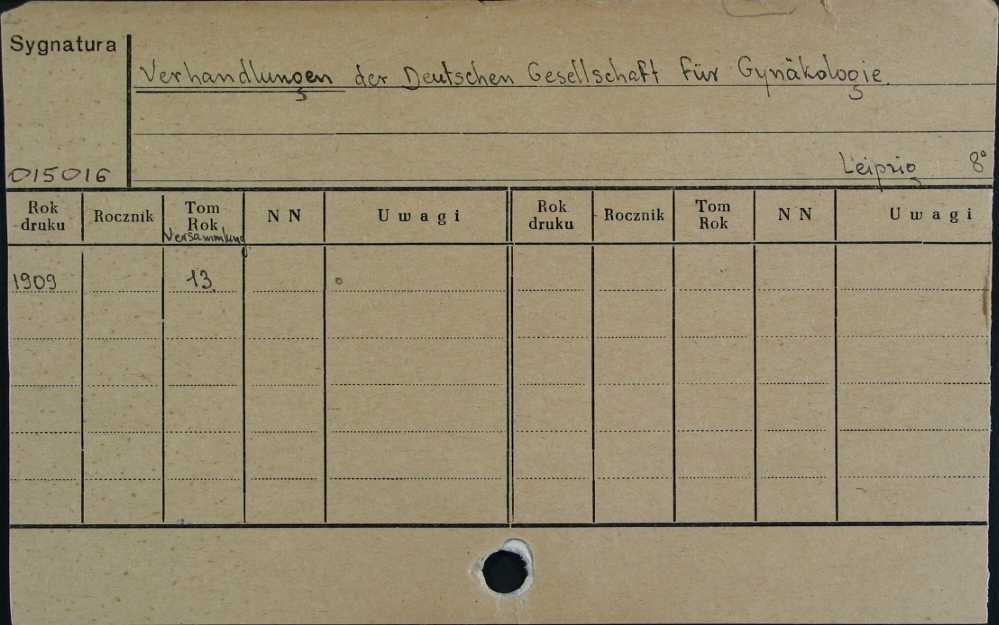 Sygnatura
Verhandlungen der Deutschen Gesellschaft für Gynäkologie.
015016
Leipzig 8°
Rok druku Rocznik Tom Rok Versammlung NN Uwagi Rok druku Rocznik Tom Rok NN Uwagi
1909 13.